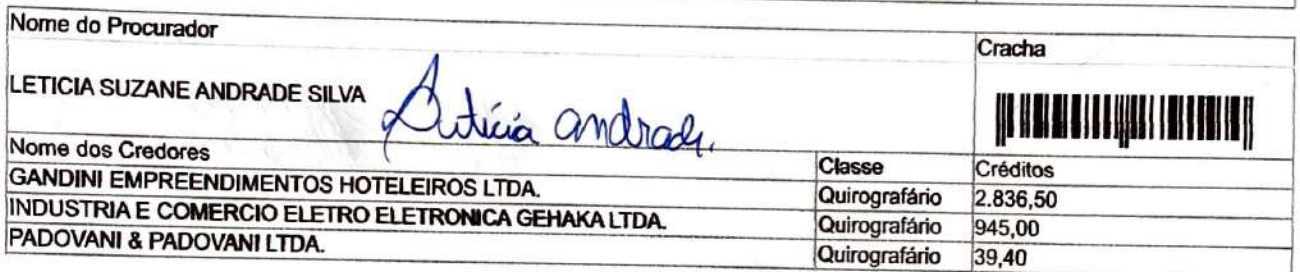 Nome do Procurador
Cracha
LETICIA SUZANE ANDRADE SILVA
Letícia andrade.
Nome dos Credores Classe Créditos
GANDINI EMPREENDIMENTOS HOTELEIROS LTDA. Quirografário 2.836,50
INDUSTRIA E COMERCIO ELETRO ELETRONICA GEHAKA LTDA. Quirografário 945,00
PADOVANI & PADOVANI LTDA. Quirografário 39,40